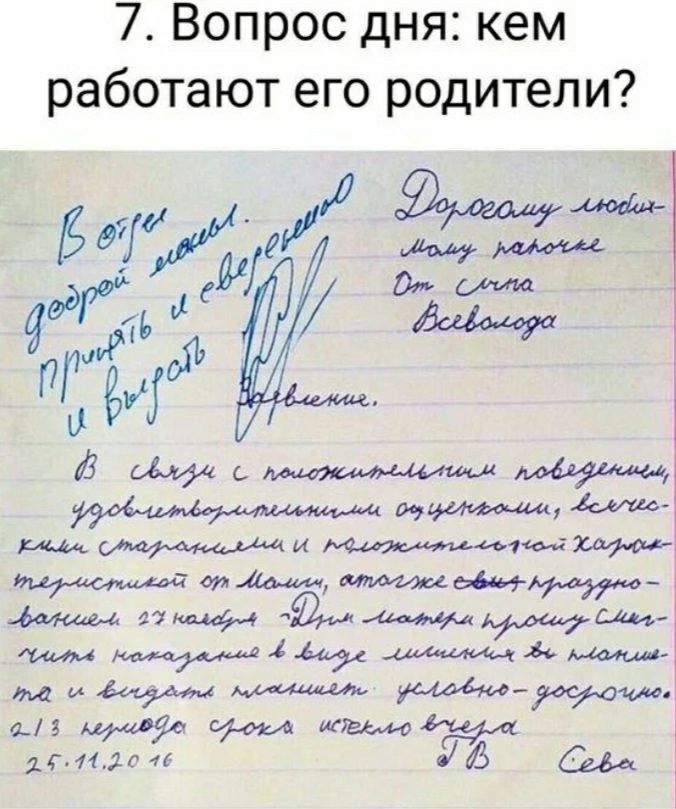 7. Вопрос дня: кем
работают его родители?
В отдел
доброй мамы.
Принять к сведению
и выдать
Дорогому люби-
мому папочке
От сына
Всеволода
Заявление.
В связи с положительным поведением,
удовлетворительными оценками, всячес-
кими стараниями и положительной харак-
теристикой от Мамы, атагже праздно-
ванием 27 ноября - Дня матери прошу смяг-
чить наказание в виде лишения планше-
та и выдать планшет условно-досрочно.
2/3 периода срока истекло вчера
25.11.2016 ГВ Сева